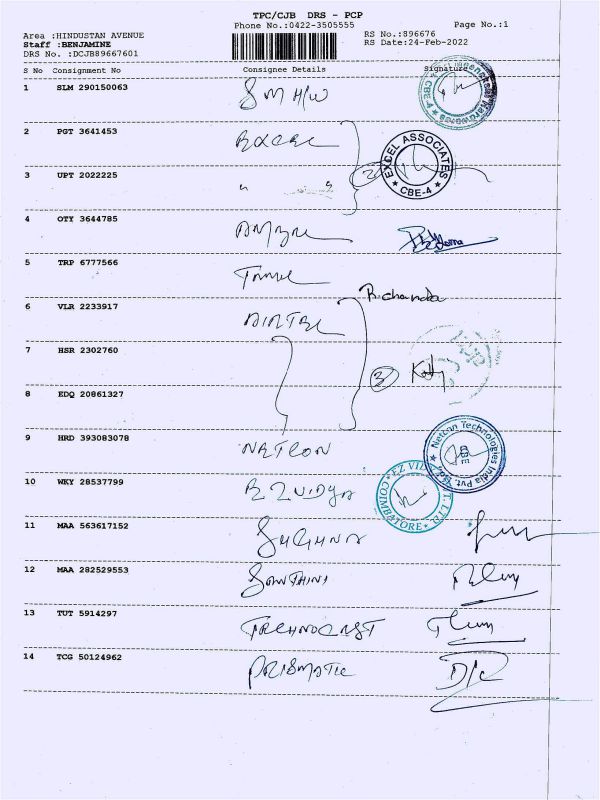 TPC/CJB DRS - PCP
Phone No.:0422-3505555 Page No.:1
Area :HINDUSTAN AVENUE RS No.:896676
Staff :BENJAMINE RS Date:24-Feb-2022
DRS No. :DCJB89667601
S No Consignment No Consignee Details Signature
1 SLM 290150063 SM H/W
2 PGT 3641453 EXCEL
EXCEL ASSOCIATES
CBE-4
3 UPT 2022225 " " 2
4 OTY 3644785
5 TRP 6777566
6 VLR 2233917 AIRTEL
7 HSR 2302760
3
8 EDQ 20861327
9 HRD 393083078 NETCON
Netcon Technologies India Pvt. Ltd.
10 WKY 28537799 EZVIDYA
COIMBATORE
11 MAA 563617152 SUGUNA
12 MAA 282529553 SANTHINI
13 TUT 5914297 TECHNOCRAFT
14 TCG 50124962 PRISMATIC